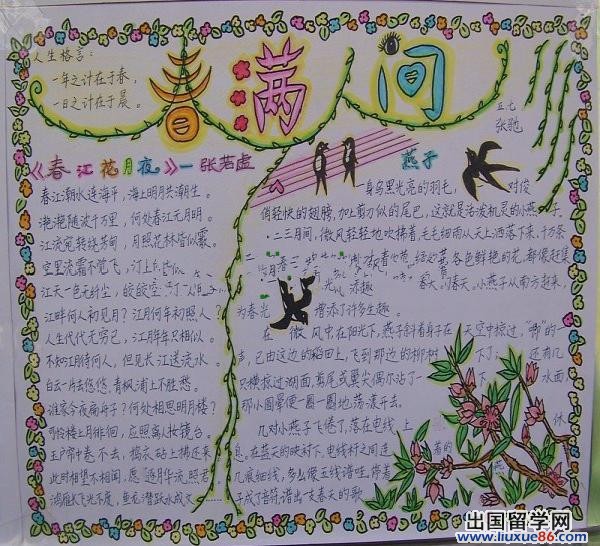 人生格言：
一年之计在于春，
一日之计在于晨。
春满人间
五七
张驰
《春江花月夜》—张若虚
春江潮水连海平，海上明月共潮生。
滟滟随波千万里，何处春江无月明。
江流宛转绕芳甸，月照花林皆似霰。
空里流霜不觉飞，汀上
江天一色无纤尘，皎皎空
江畔何人初见月？江月何年初照人？
人生代代无穷已，江月年年只相似。
不知江月待何人，但见长江送流水。
白云一片去悠悠，青枫浦上不胜愁。
谁家今夜扁舟子？何处相思明月楼？
可怜楼上月徘徊，应照离人妆镜台。
玉户帘中卷不去，捣衣砧上拂还来
此时相望不相闻，愿逐月华流照君。
鸿雁长飞光不度，鱼龙潜跃水成文
燕子
一身乌黑光亮的羽毛，一对俊
俏轻快的翅膀，加上剪刀似的尾巴，这就是活泼机灵的小燕子。
二三月间，微风轻轻地吹拂着，毛毛细雨从天上洒落下来，千万条
各色鲜艳的花，都像赶集
春天。春天，小燕子从南方赶来，
为春光增添了许多生趣。
在微风中，在阳光下，燕子斜着身子在天空中掠过，“唧”的一
声，已由这边的稻田上，飞到那边的柳树下了；还有几
只横掠过湖面，剪尾或翼尖偶尔沾了一下水面，
那小圆晕便一圈一圈地荡漾开去。
几对小燕子飞倦了，落在电线上休
息。在蓝天的映衬下，电线杆之间连着的
几痕细线，多么像五线谱哇，停着燕
子成了音符，谱出一支春天的歌
出国留学网
www.liuxue86.com